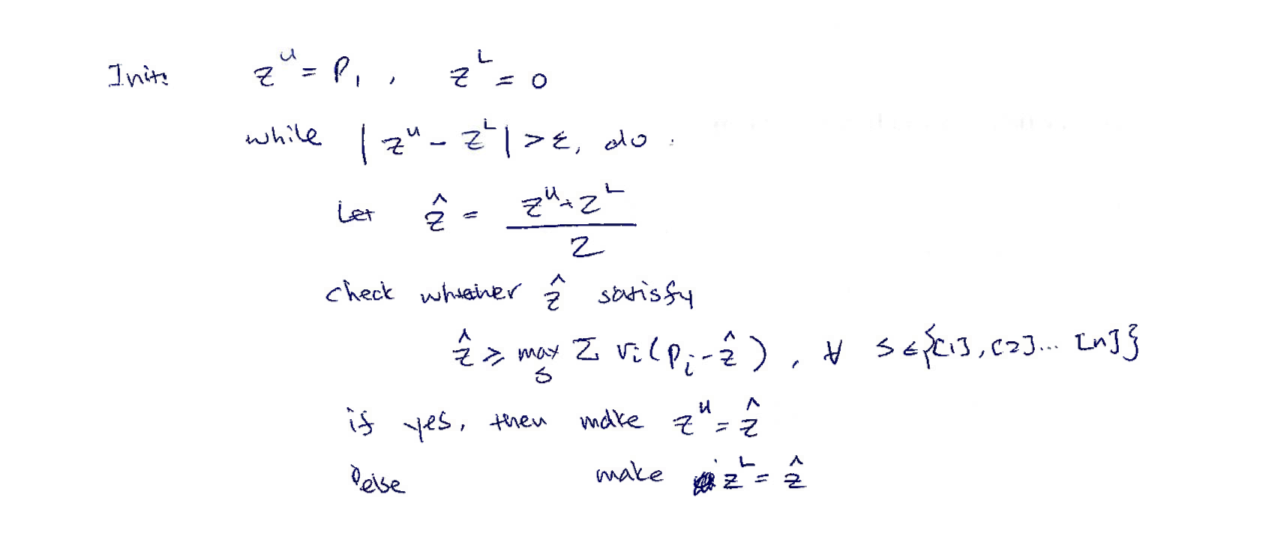 Init: z^U = P_1 , z^L = 0
while | z^U - z^L | > ε, do .
Let ẑ = (z^U + z^L) / 2
check whether ẑ satisfy
ẑ ≥ max_S Σ v_i (P_i - ẑ) , ∀ S ∈ {[1], [2]... [n]}
if yes, then make z^U = ẑ
else make z^L = ẑ